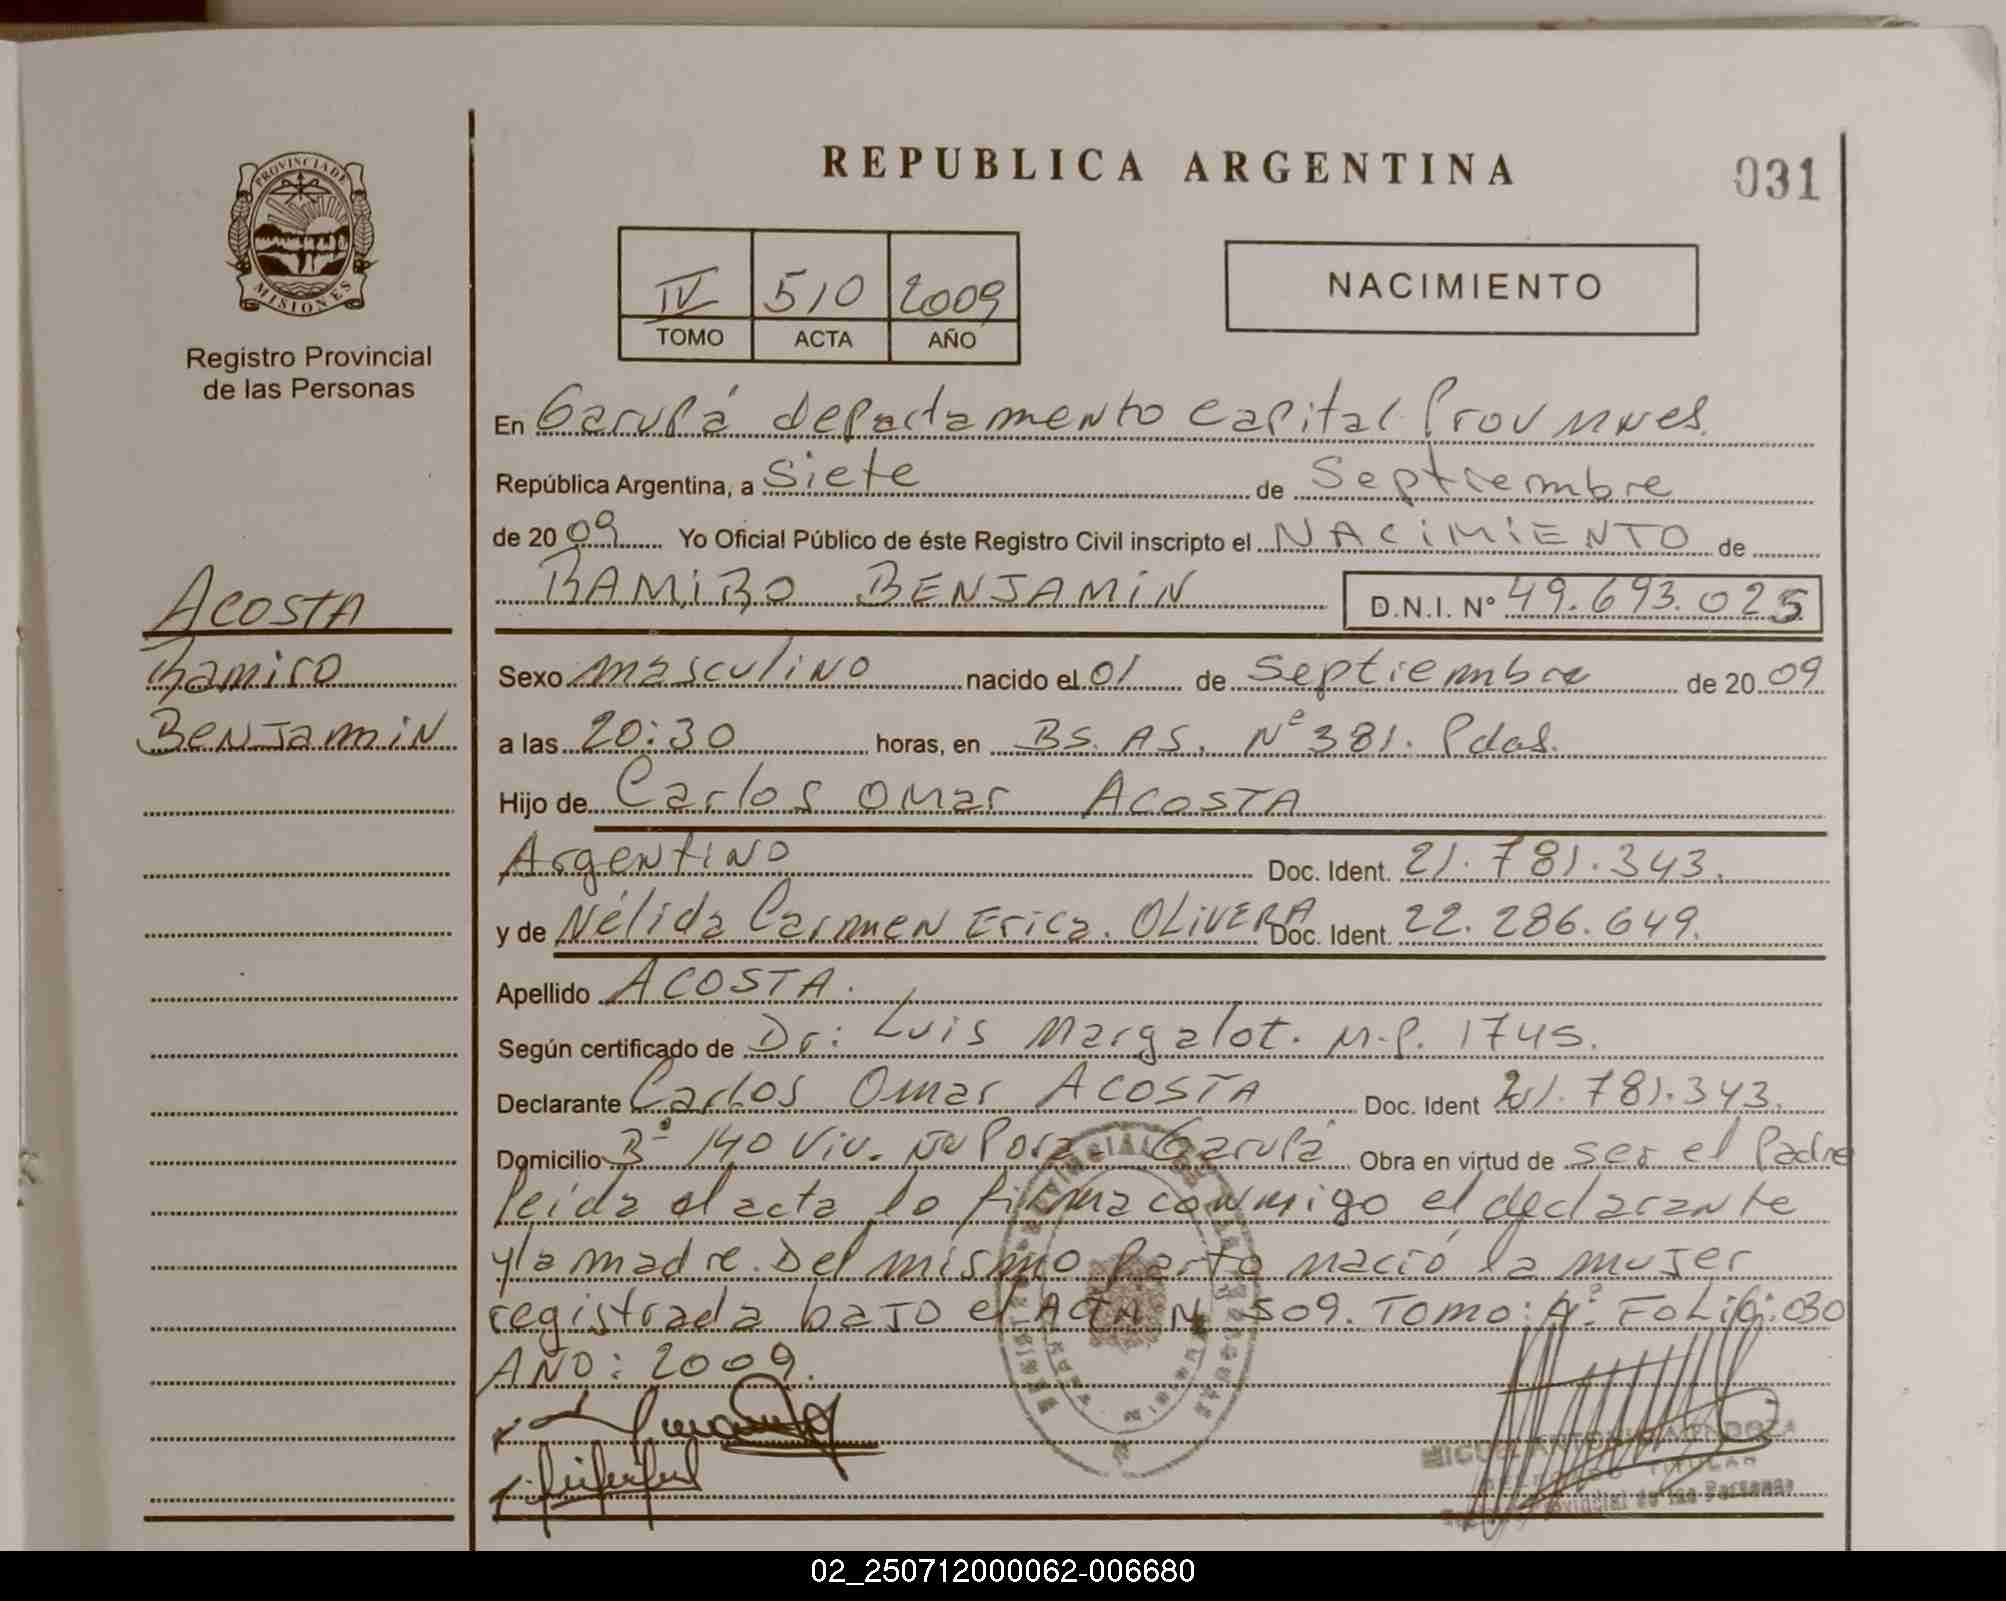 REPUBLICA ARGENTINA
031
PROVINCIA DE
MISIONES
Registro Provincial
de las Personas
IV 510 2009
TOMO ACTA AÑO
NACIMIENTO
En Garupá departamento capital Prov Mnes.
República Argentina, a Siete de Septiembre
de 2009 Yo Oficial Público de éste Registro Civil inscripto el NACIMIENTO de
RAMIRO BENJAMIN D.N.I. Nº 49.693.025
ACOSTA
Ramiro
Benjamin
Sexo masculino nacido el 01 de Septiembre de 2009
a las 20:30 horas, en Bs. As. Nº 381. Pdas.
Hijo de Carlos Omar ACOSTA
Argentino Doc. Ident. 21.781.343.
y de Nélida Carmen Erica. OLIVERA Doc. Ident. 22.286.649.
Apellido ACOSTA.
Según certificado de Dr: Luis Margalot. M.P. 1745.
Declarante Carlos Omar ACOSTA Doc. Ident 21.781.343.
Domicilio Bº 140 Viv. Ñu Pora - Garupá Obra en virtud de ser el Padre
leída el acta lo firma conmigo el declarante
y la madre. Del mismo Parto nació la mujer
registrada bajo el ACTA Nº 509. Tomo: 4º. Folio: 030
AÑO: 2009.
MIGUEL ANTONIO MENDOZA
TITULAR
Provincial de las Personas
02_250712000062-006680